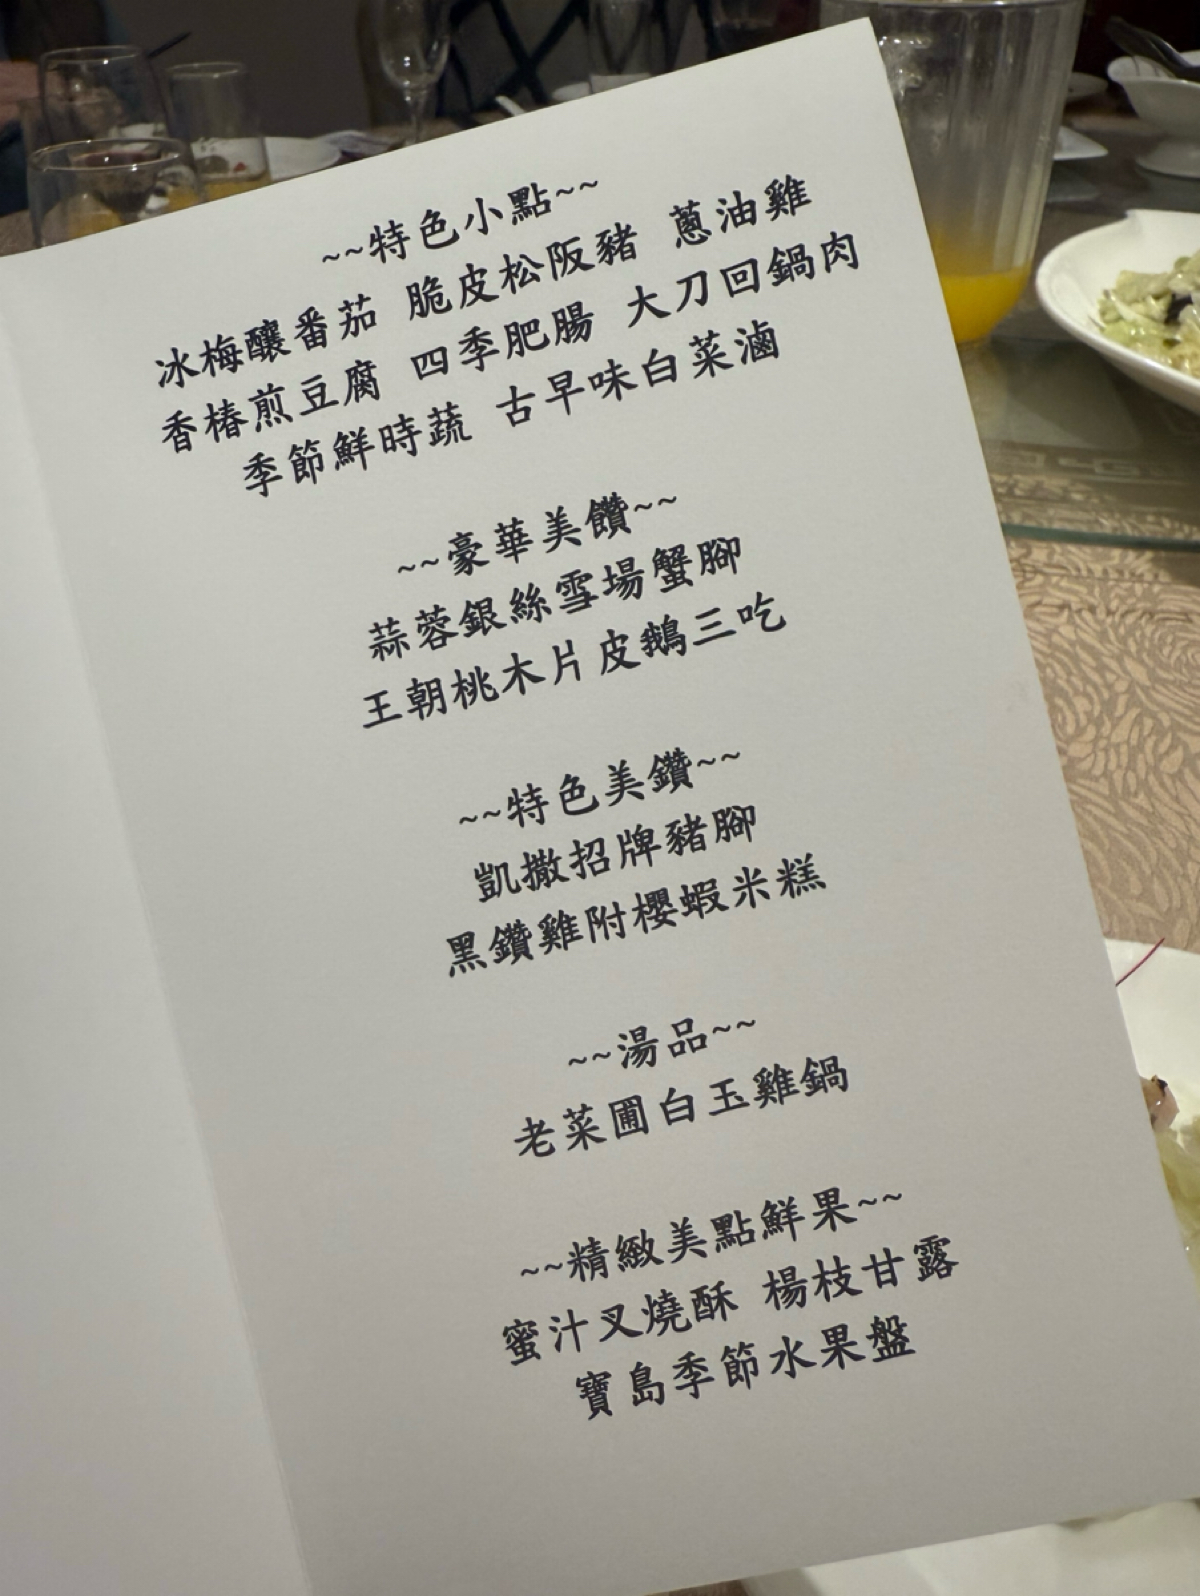 ~~特色小點~~
冰梅釀番茄 脆皮松阪豬 蔥油雞
香椿煎豆腐 四季肥腸 大刀回鍋肉
季節鮮時蔬 古早味白菜滷
~~豪華美饡~~
蒜蓉銀絲雪場蟹腳
王朝桃木片皮鵝三吃
~~特色美鑽~~
凱撒招牌豬腳
黑鑽雞附櫻蝦米糕
~~湯品~~
老菜圃白玉雞鍋
~~精緻美點鮮果~~
蜜汁叉燒酥 楊枝甘露
寶島季節水果盤